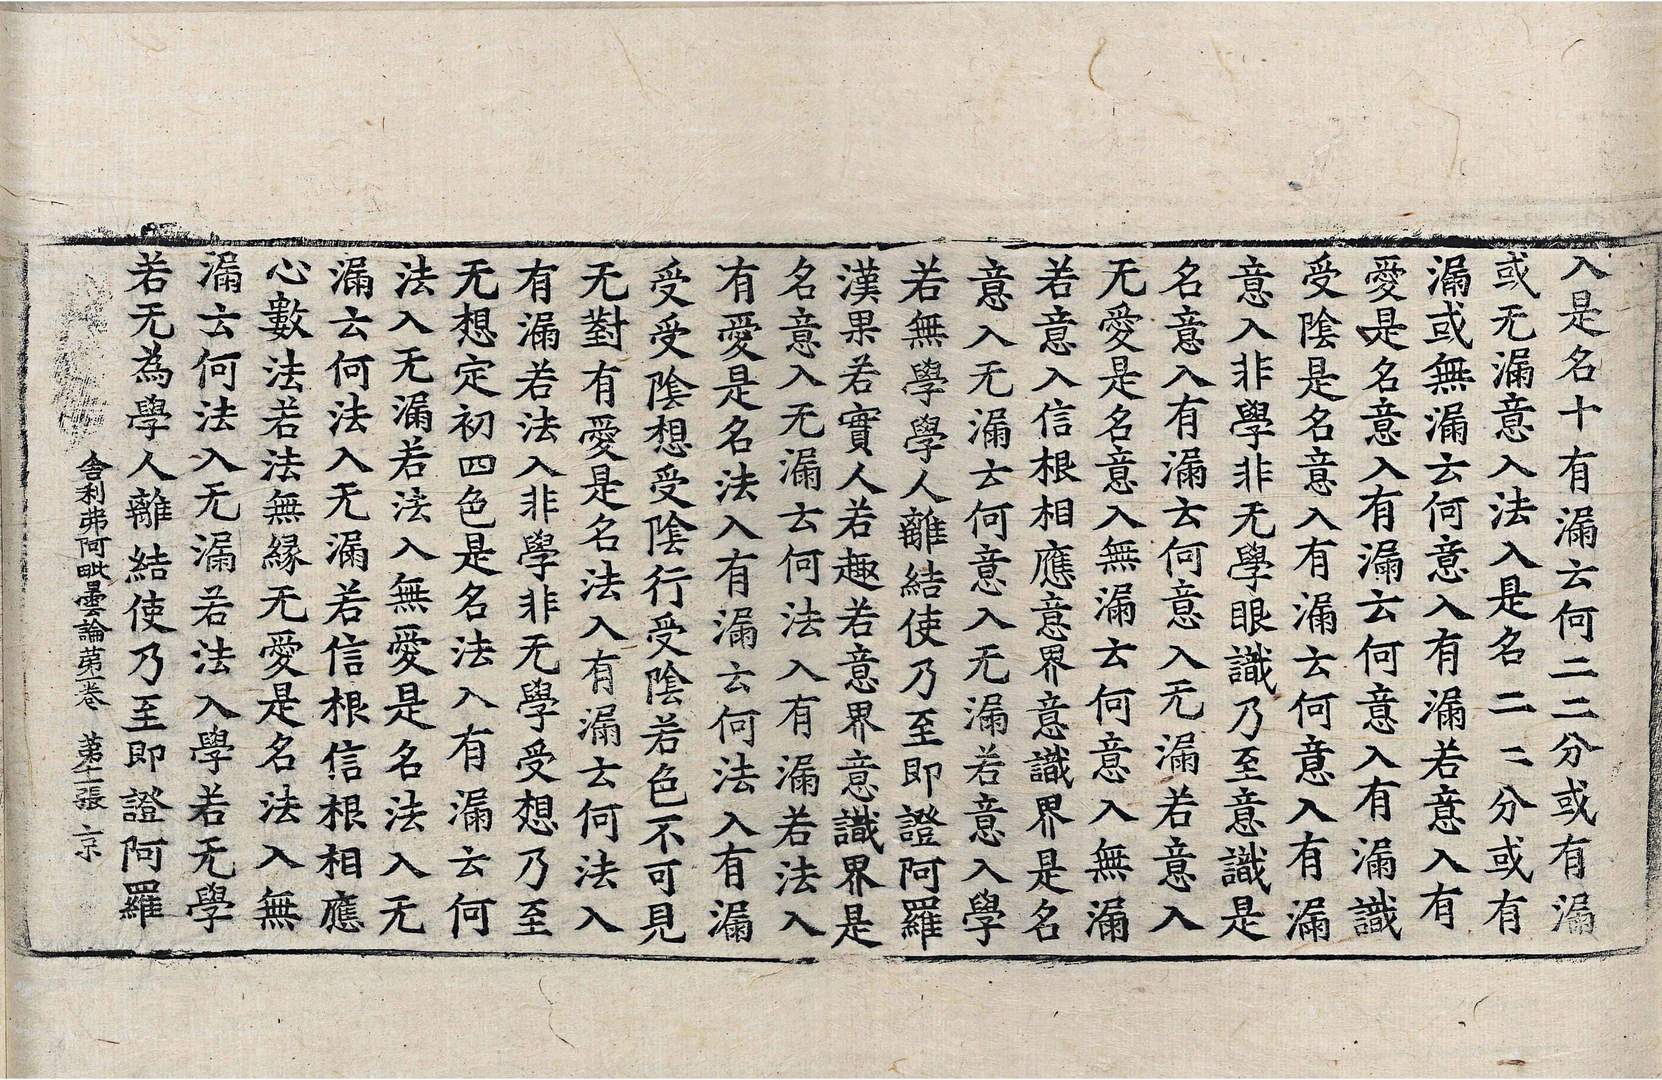 入是名十有漏云何二二分或有漏
或无漏意入法入是名二二分或有
漏或無漏云何意入有漏若意入有
愛是名意入有漏云何意入有漏識
受陰是名意入有漏云何意入有漏
意入非學非无學眼識乃至意識是
名意入有漏云何意入无漏若意入
无愛是名意入無漏云何意入無漏
若意入信根相應意界意識界是名
意入无漏云何意入无漏若意入學
若無學學人離結使乃至即證阿羅
漢果若實人若趣若意界意識界是
名意入无漏云何法入有漏若法入
有愛是名法入有漏云何法入有漏
受受陰想受陰行受陰若色不可見
无對有愛是名法入有漏云何法入
有漏若法入非學非无學受想乃至
无想定初四色是名法入有漏云何
法入无漏若法入無愛是名法入无
漏云何法入无漏若信根信根相應
心數法若法無緣无愛是名法入無
漏云何法入无漏若法入學若无學
若无為學人離結使乃至即證阿羅
舍利弗阿毗曇論第一卷 第十一張 京